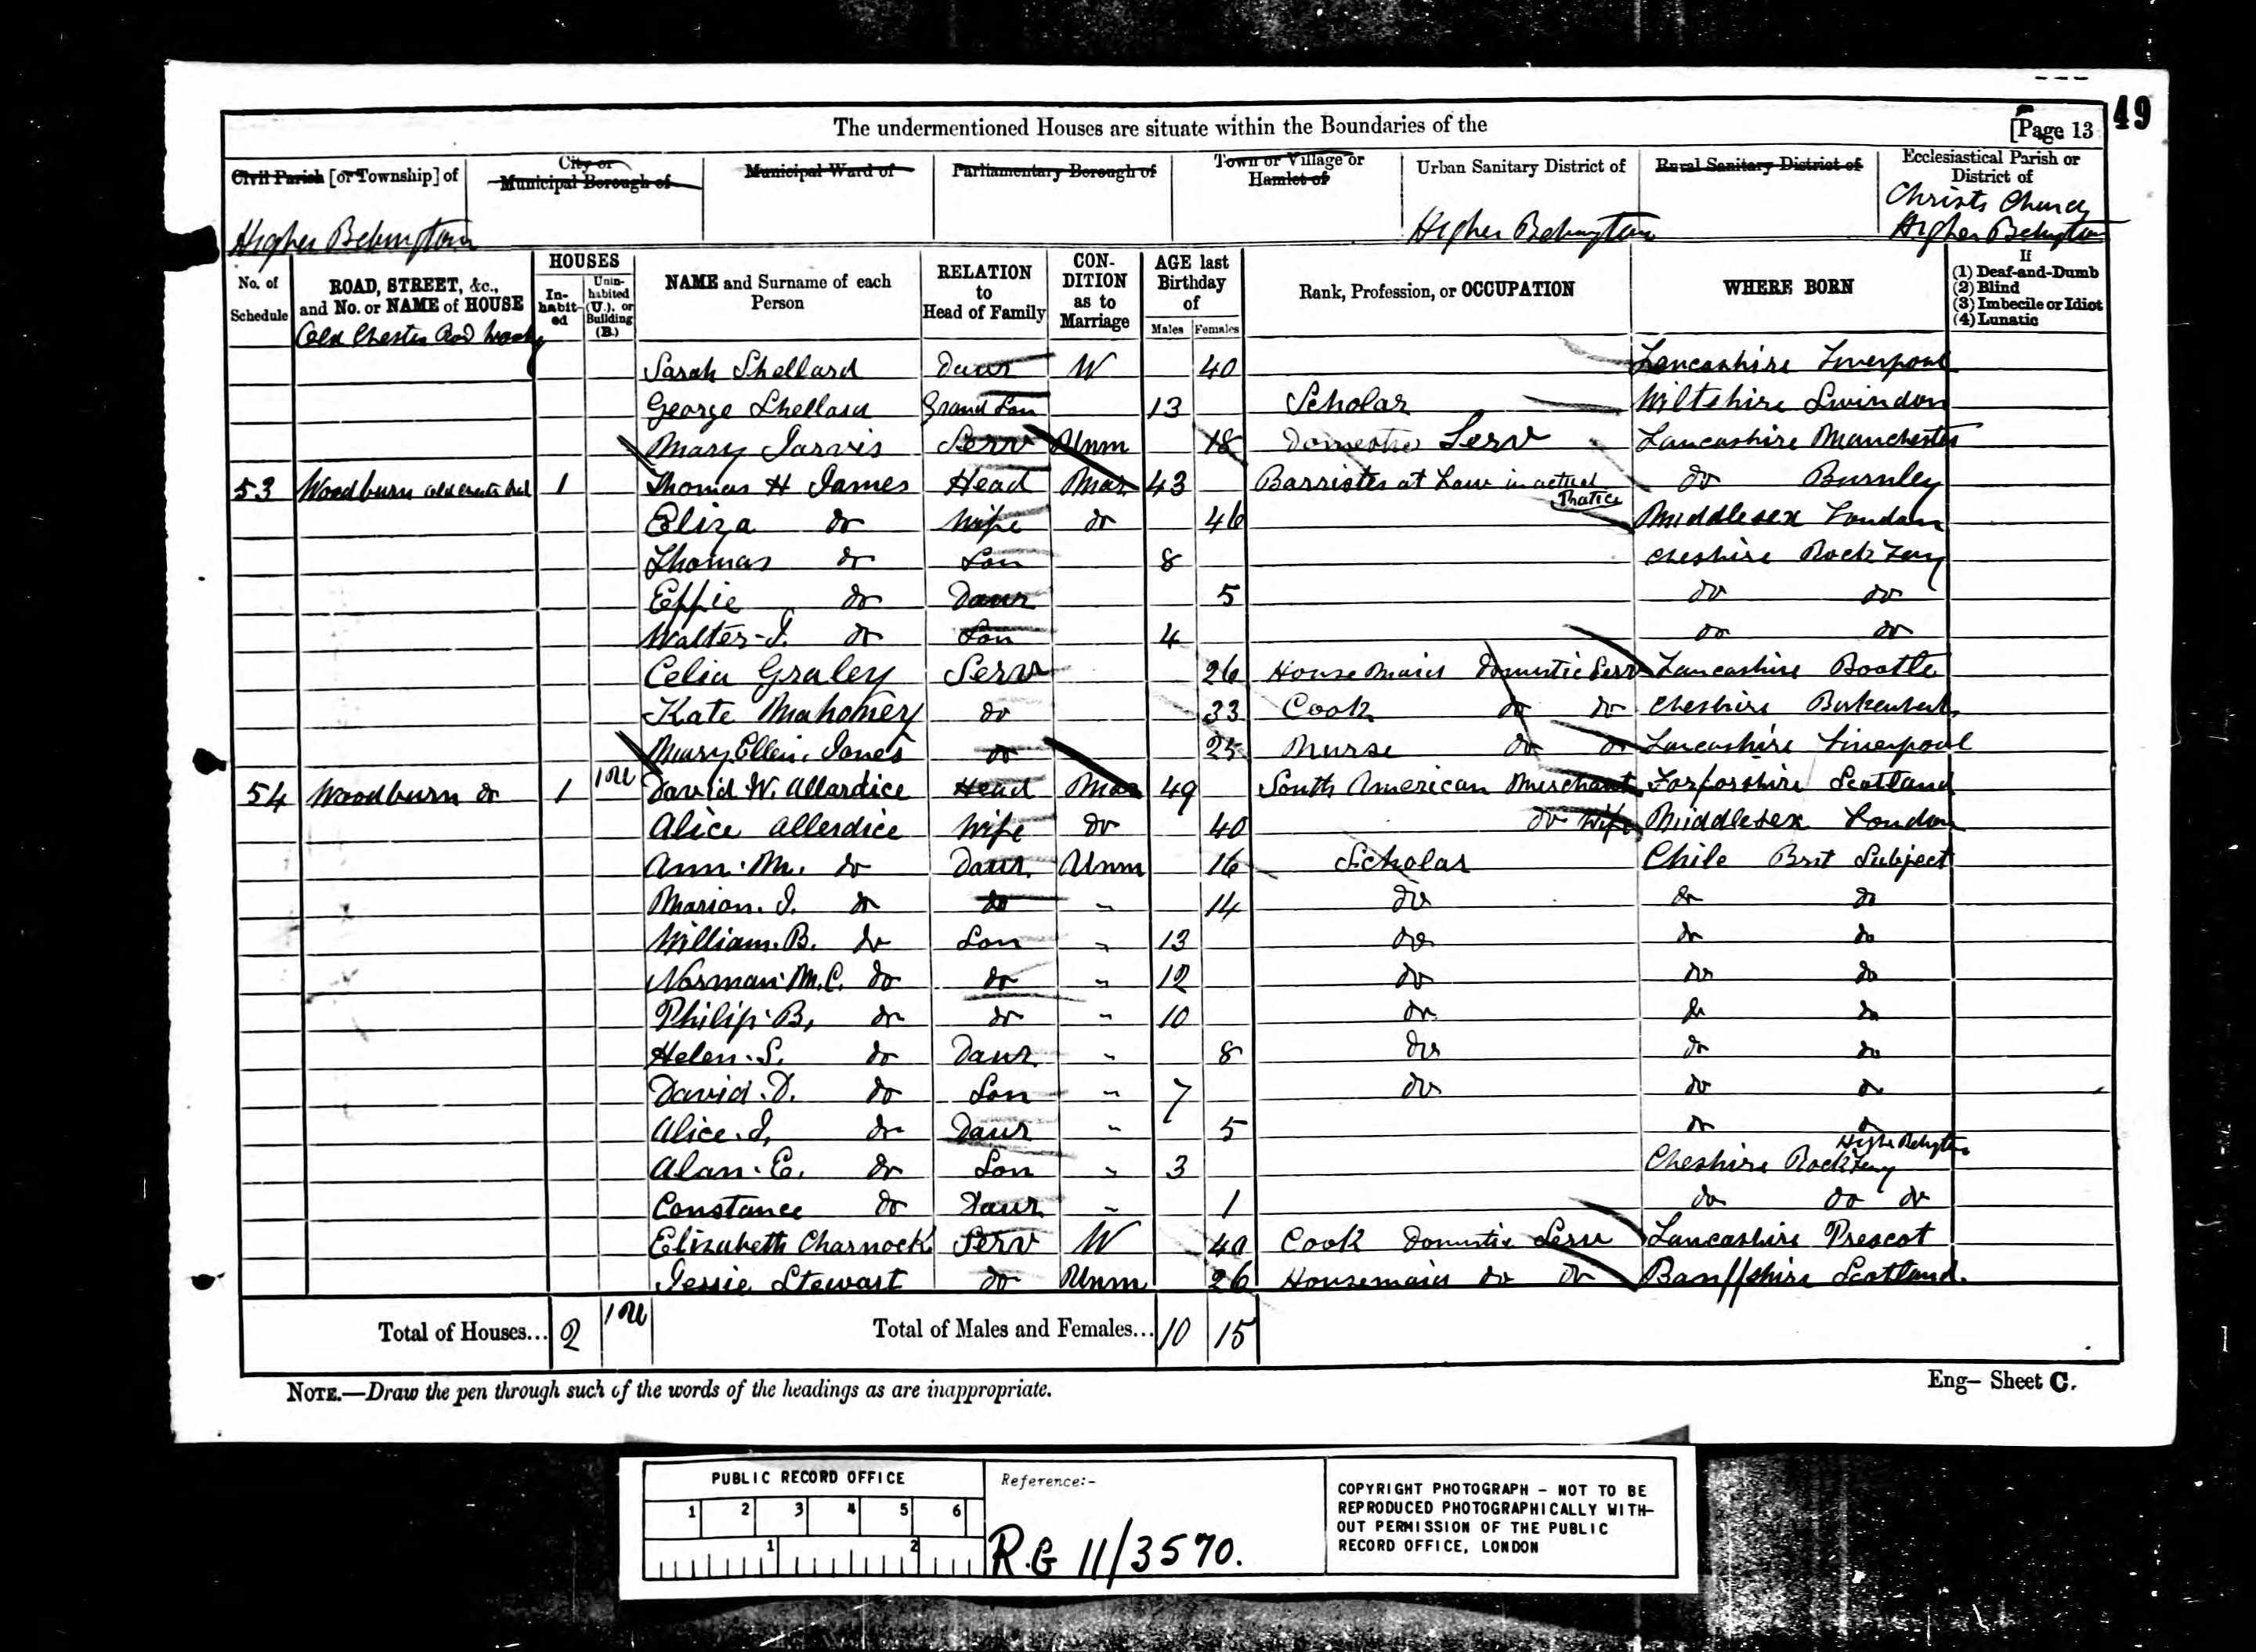 49
The undermentioned Houses are situate within the Boundaries of the [Page 13
Civil Parish [or Township] of
City or Municipal Borough of
Municipal Ward of
Parliamentary Borough of
Town or Village or Hamlet of
Urban Sanitary District of
Rural Sanitary District of
Ecclesiastical Parish or District of
Higher Bebington
Higher Bebington
Christs Church Higher Bebington
No. of Schedule
ROAD, STREET, &c., and No. or NAME of HOUSE
HOUSES
Inhabited
Uninhabited (U.), or Building (B.)
NAME and Surname of each Person
RELATION to Head of Family
CONDITION as to Marriage
AGE last Birthday of
Males Females
Rank, Profession, or OCCUPATION
WHERE BORN
If
(1) Deaf-and-Dumb
(2) Blind
(3) Imbecile or Idiot
(4) Lunatic
Old Chester Road
Sarah Shellard Daur W 40 Lancashire Liverpool
George Shellard Grand Son 13 Scholar Wiltshire Swindon
Mary Jarvis Serv Unm 18 Domestic Serv Lancashire Manchester
53 Woodburn 1 Thomas H James Head Mar 43 Barrister at Law in actual Pratice do Burnley
Eliza do Wife do 46 Middlesex London
Thomas do Son 8 Cheshire Rock Ferry
Effie do Daur 5 do do
Walter J. do Son 4 do do
Celia Graley Serv 26 House Maid Domestic Serv Lancashire Bootle
Kate Mahoney do 33 Cook do do Cheshire Birkenhead
Mary Ellen Jones do 25 Nurse do do Lancashire Liverpool
54 Woodburn do 1 1 U David W. Allardice Head Mar 49 South American Merchant Forforshire Scotland
Alice Allerdice Wife do 40 do Wife Middlesex London
Ann M. do Daur. Unm 16 Scholar Chile Brit Subject
Marion. J. do do " 14 do do do
William. B. do Son " 13 do do do
Norman M.C. do do " 12 do do do
Philip B. do do " 10 do do do
Helen. S. do Daur. " 8 do do do
David. D. do Son " 7 do do do
Alice. J. do Daur " 5 do do
Alan. E. do Son " 3 Cheshire Rock Ferry Higher Bebington
Constance do Daur. " 1 do do do
Elizabeth Charnock Serv W 40 Cook Domestic Serv Lancashire Prescot
Jessie Stewart do Unm 26 Housemaid do do Banffshire Scotland.
Total of Houses... 2 1 U Total of Males and Females... 10 15
NOTE.—Draw the pen through such of the words of the headings as are inappropriate.
Eng— Sheet C.
PUBLIC RECORD OFFICE
1 2 3 4 5 6
1 2
Reference:-
R.G 11/3570.
COPYRIGHT PHOTOGRAPH - NOT TO BE
REPRODUCED PHOTOGRAPHICALLY WITH-
OUT PERMISSION OF THE PUBLIC
RECORD OFFICE, LONDON